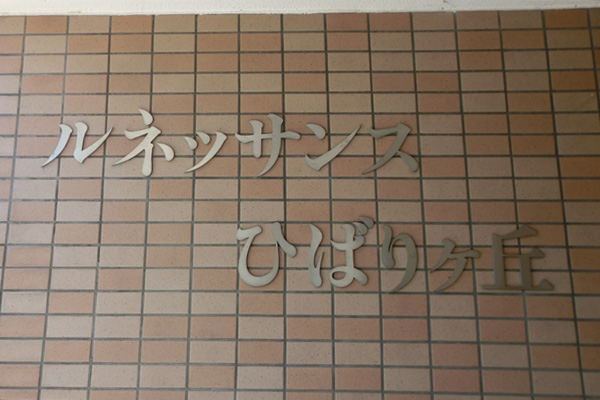 ルネッサンス
ひばりヶ丘